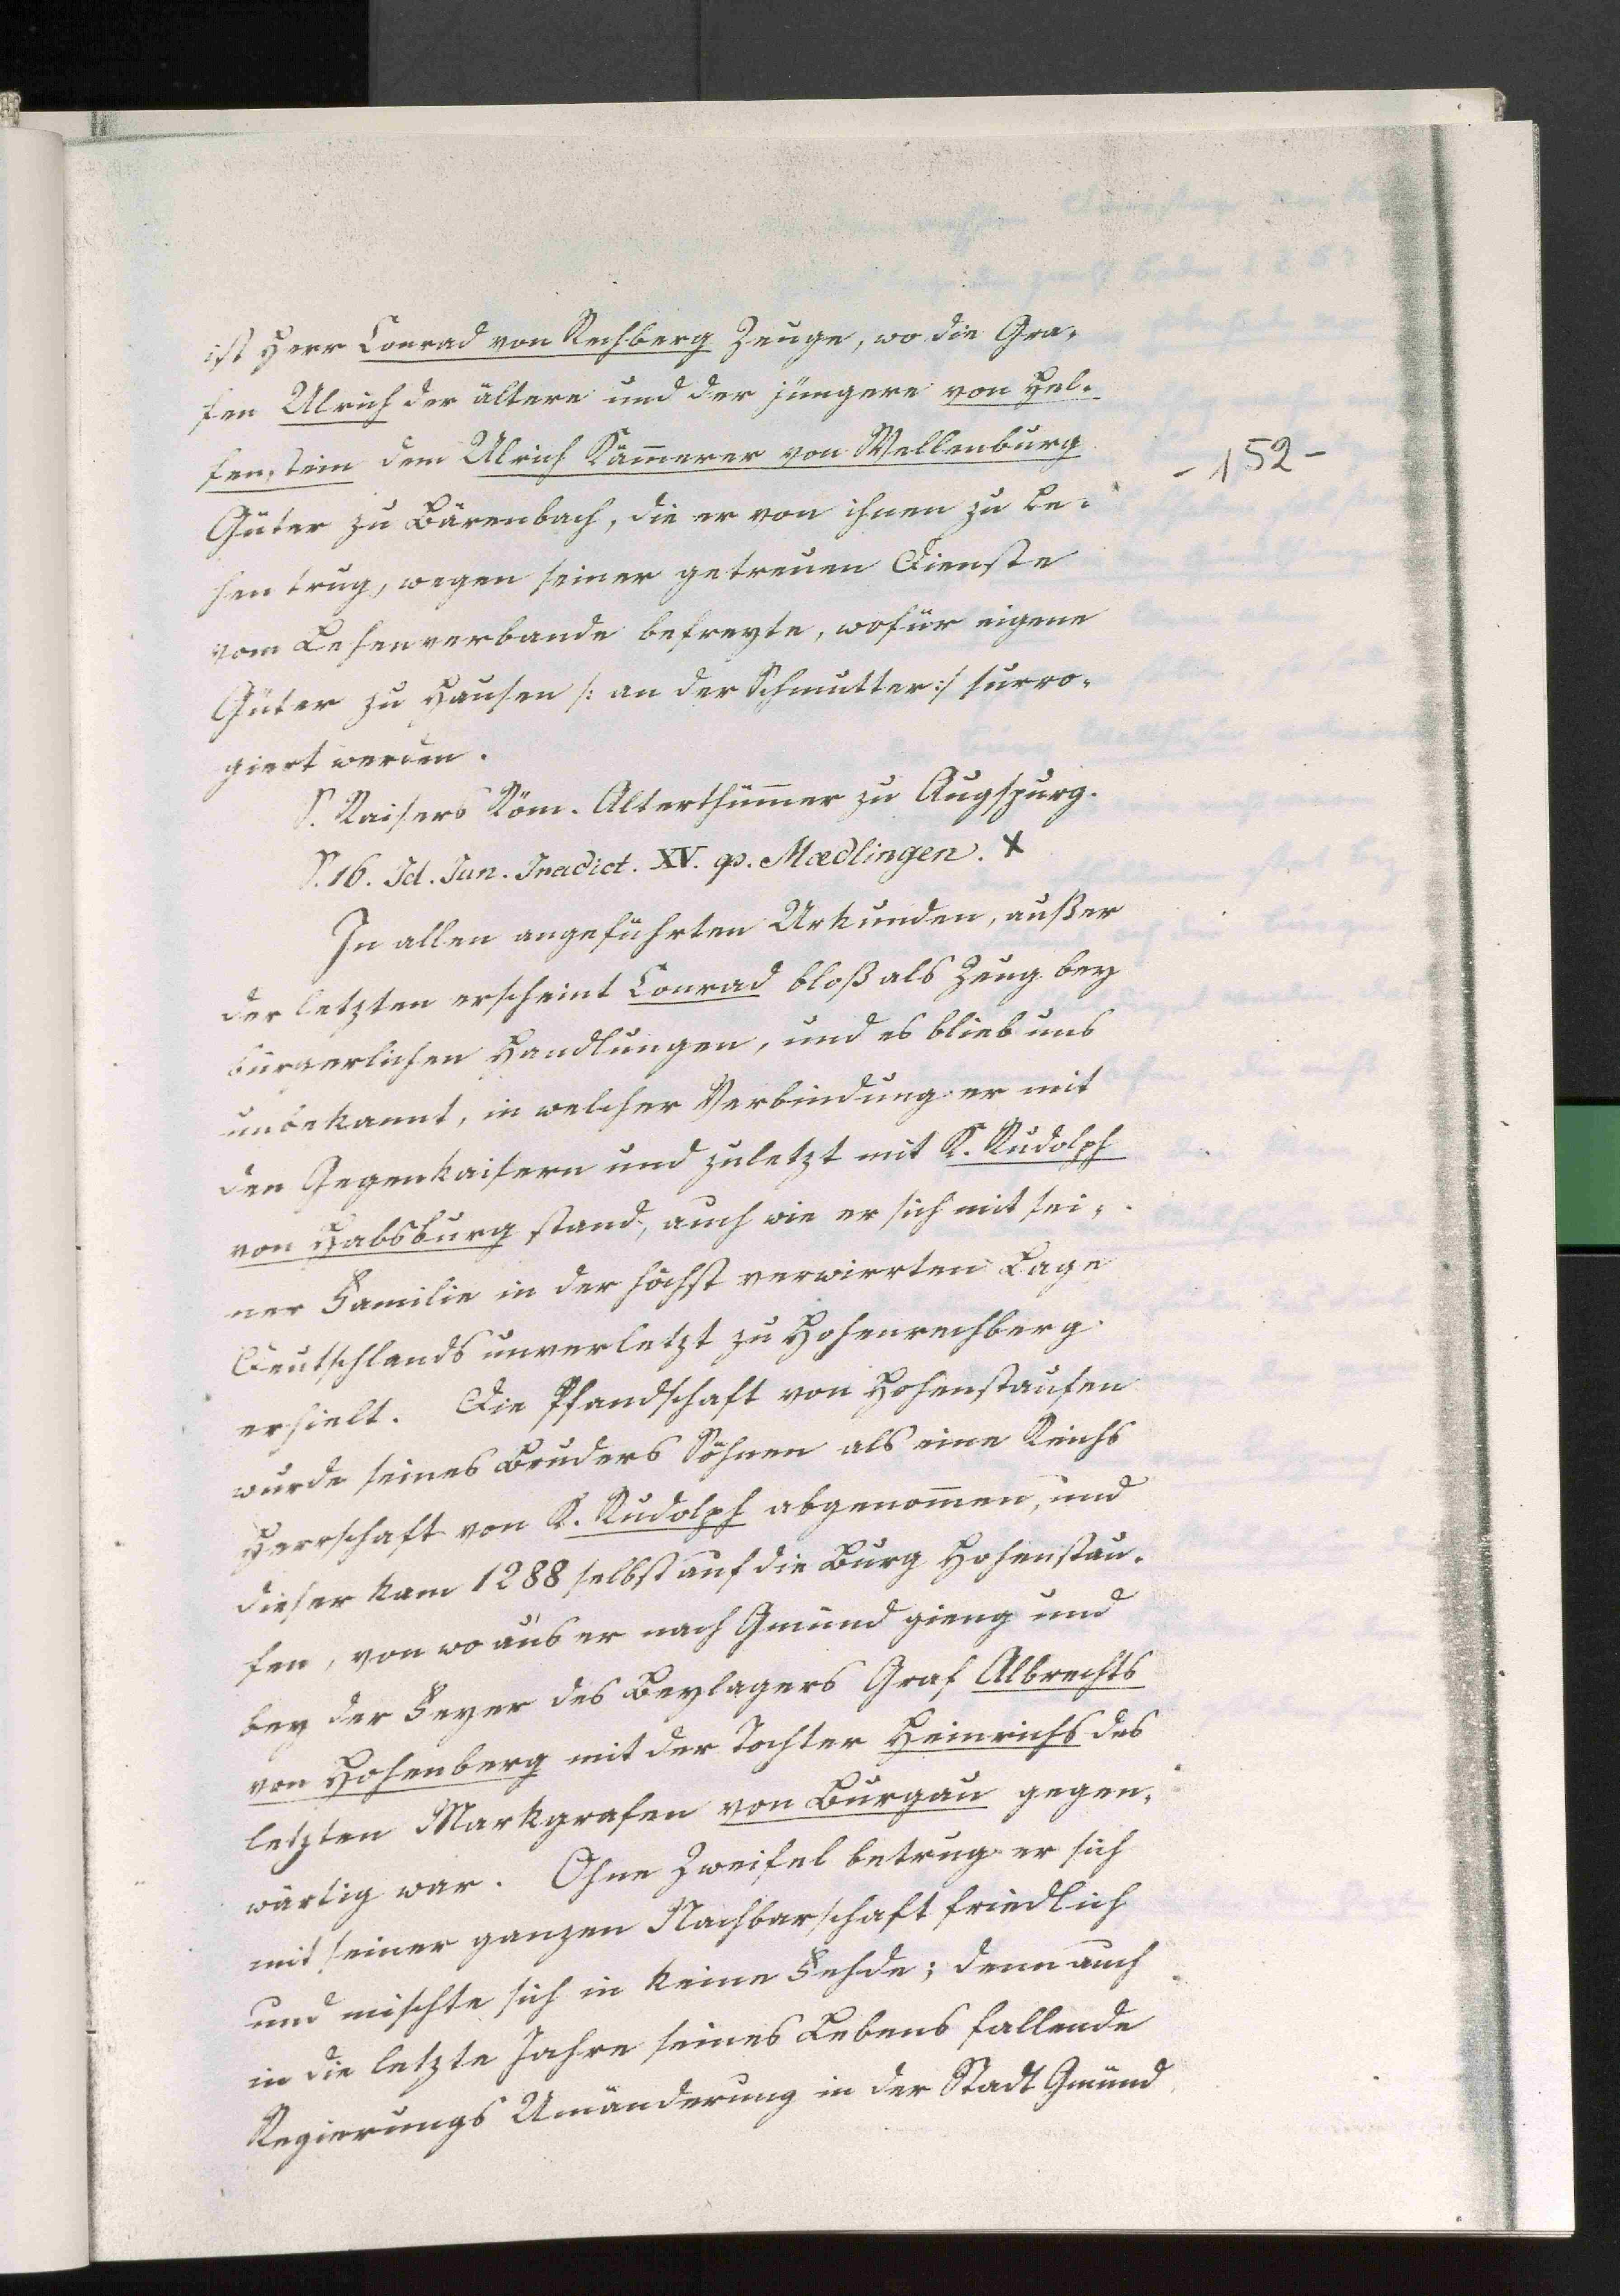 ist Herr Conrad von Rechberg Zeuge, wo die Gra-
fen Ulrich der ältere und der jüngere von Hel-
fenstein dem Ulrich Kämmerer von Wellenburg
- 152 -
Güter zu Bärenbach, die er von ihnen zu Le-
hen trug, wegen seiner getreuen Dienste
vom Lehenverbande befreyte, wofür eigene
Güter zu Hausen /: an der Schmutter :/ surro-
giert werden.
S. Raisers Röm. Alterthümmer zu Augspurg.
S. 16. Id. Jun. Indict. XV. ap. Mædlingen. X
In allen angeführten Urkunden, außer
der letzten erscheint Conrad bloß als Zeug bey
bürgerlichen Handlungen, und es blieb uns
unbekannt, in welcher Verbindung er mit
den Gegenkaisern und zuletzt mit K. Rudolph
von Habsburg stand, auch wie er sich mit sei-
ner Familie in der höchst verwirrten Lage
Deutschlands unverletzt zu Hohenrechberg
erhielt. Die Pfandschaft von Hohenstaufen
wurde seines Bruders Söhnen als eine Reichs
Herrschaft von K. Rudolph abgenommen, und
dieser kam 1288 selbst auf die Burg Hohenstau-
fen, von wo aus er nach Gmünd gieng und
bey der Feyer des Beylagers Graf Albrechts
von Hohenberg mit der Tochter Heinrichs des
letzten Markgrafen von Burgau gegen-
wärtig war. Ohne Zweifel betrug er sich
mit seiner ganzen Nachbarschaft friedlich
und mischte sich in keine Fehde; denn auch
in die letzte Jahre seines Lebens fallende
Regierungs Umänderung in der Stadt Gmünd